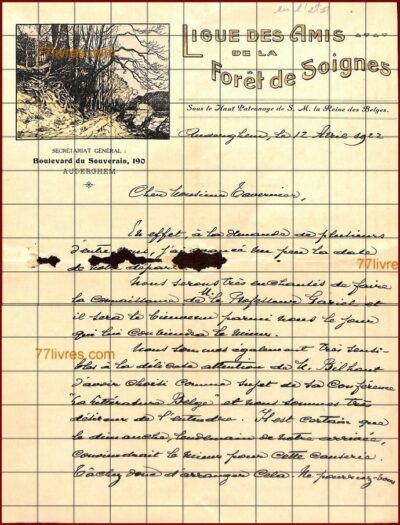 en l'état
77livres.com
LIGUE DES AMIS
DE LA
Forêt de Soignes
Sous le Haut Patronage de S. M. la Reine des Belges.
Auderghem, le 12 Avril 1922
SECRÉTARIAT GÉNÉRAL :
Boulevard du Souverain, 190
AUDERGHEM
Cher Monsieur Tavernier,
En effet, à la demande de plusieurs
d'entre nous, j'ai avancé un peu la date
de notre départ
77livre
Nous serons très enchantés de faire
la connaissance de M. le Professeur Gariel et
il sera le bienvenu parmi nous le jour
qui lui conviendra le mieux.
77livres.com
Nous sommes également très sensi-
bles à la délicate attention de M. Bilhaut
d'avoir choisi comme sujet de sa Conférence
"La littérature Belge" et nous sommes très
désireux de l'entendre. Il est certain que
le dimanche, lendemain de notre arrivée,
conviendrait le mieux pour cette causerie.
Tâchez donc d'arranger cela. Ne pourriez-vous